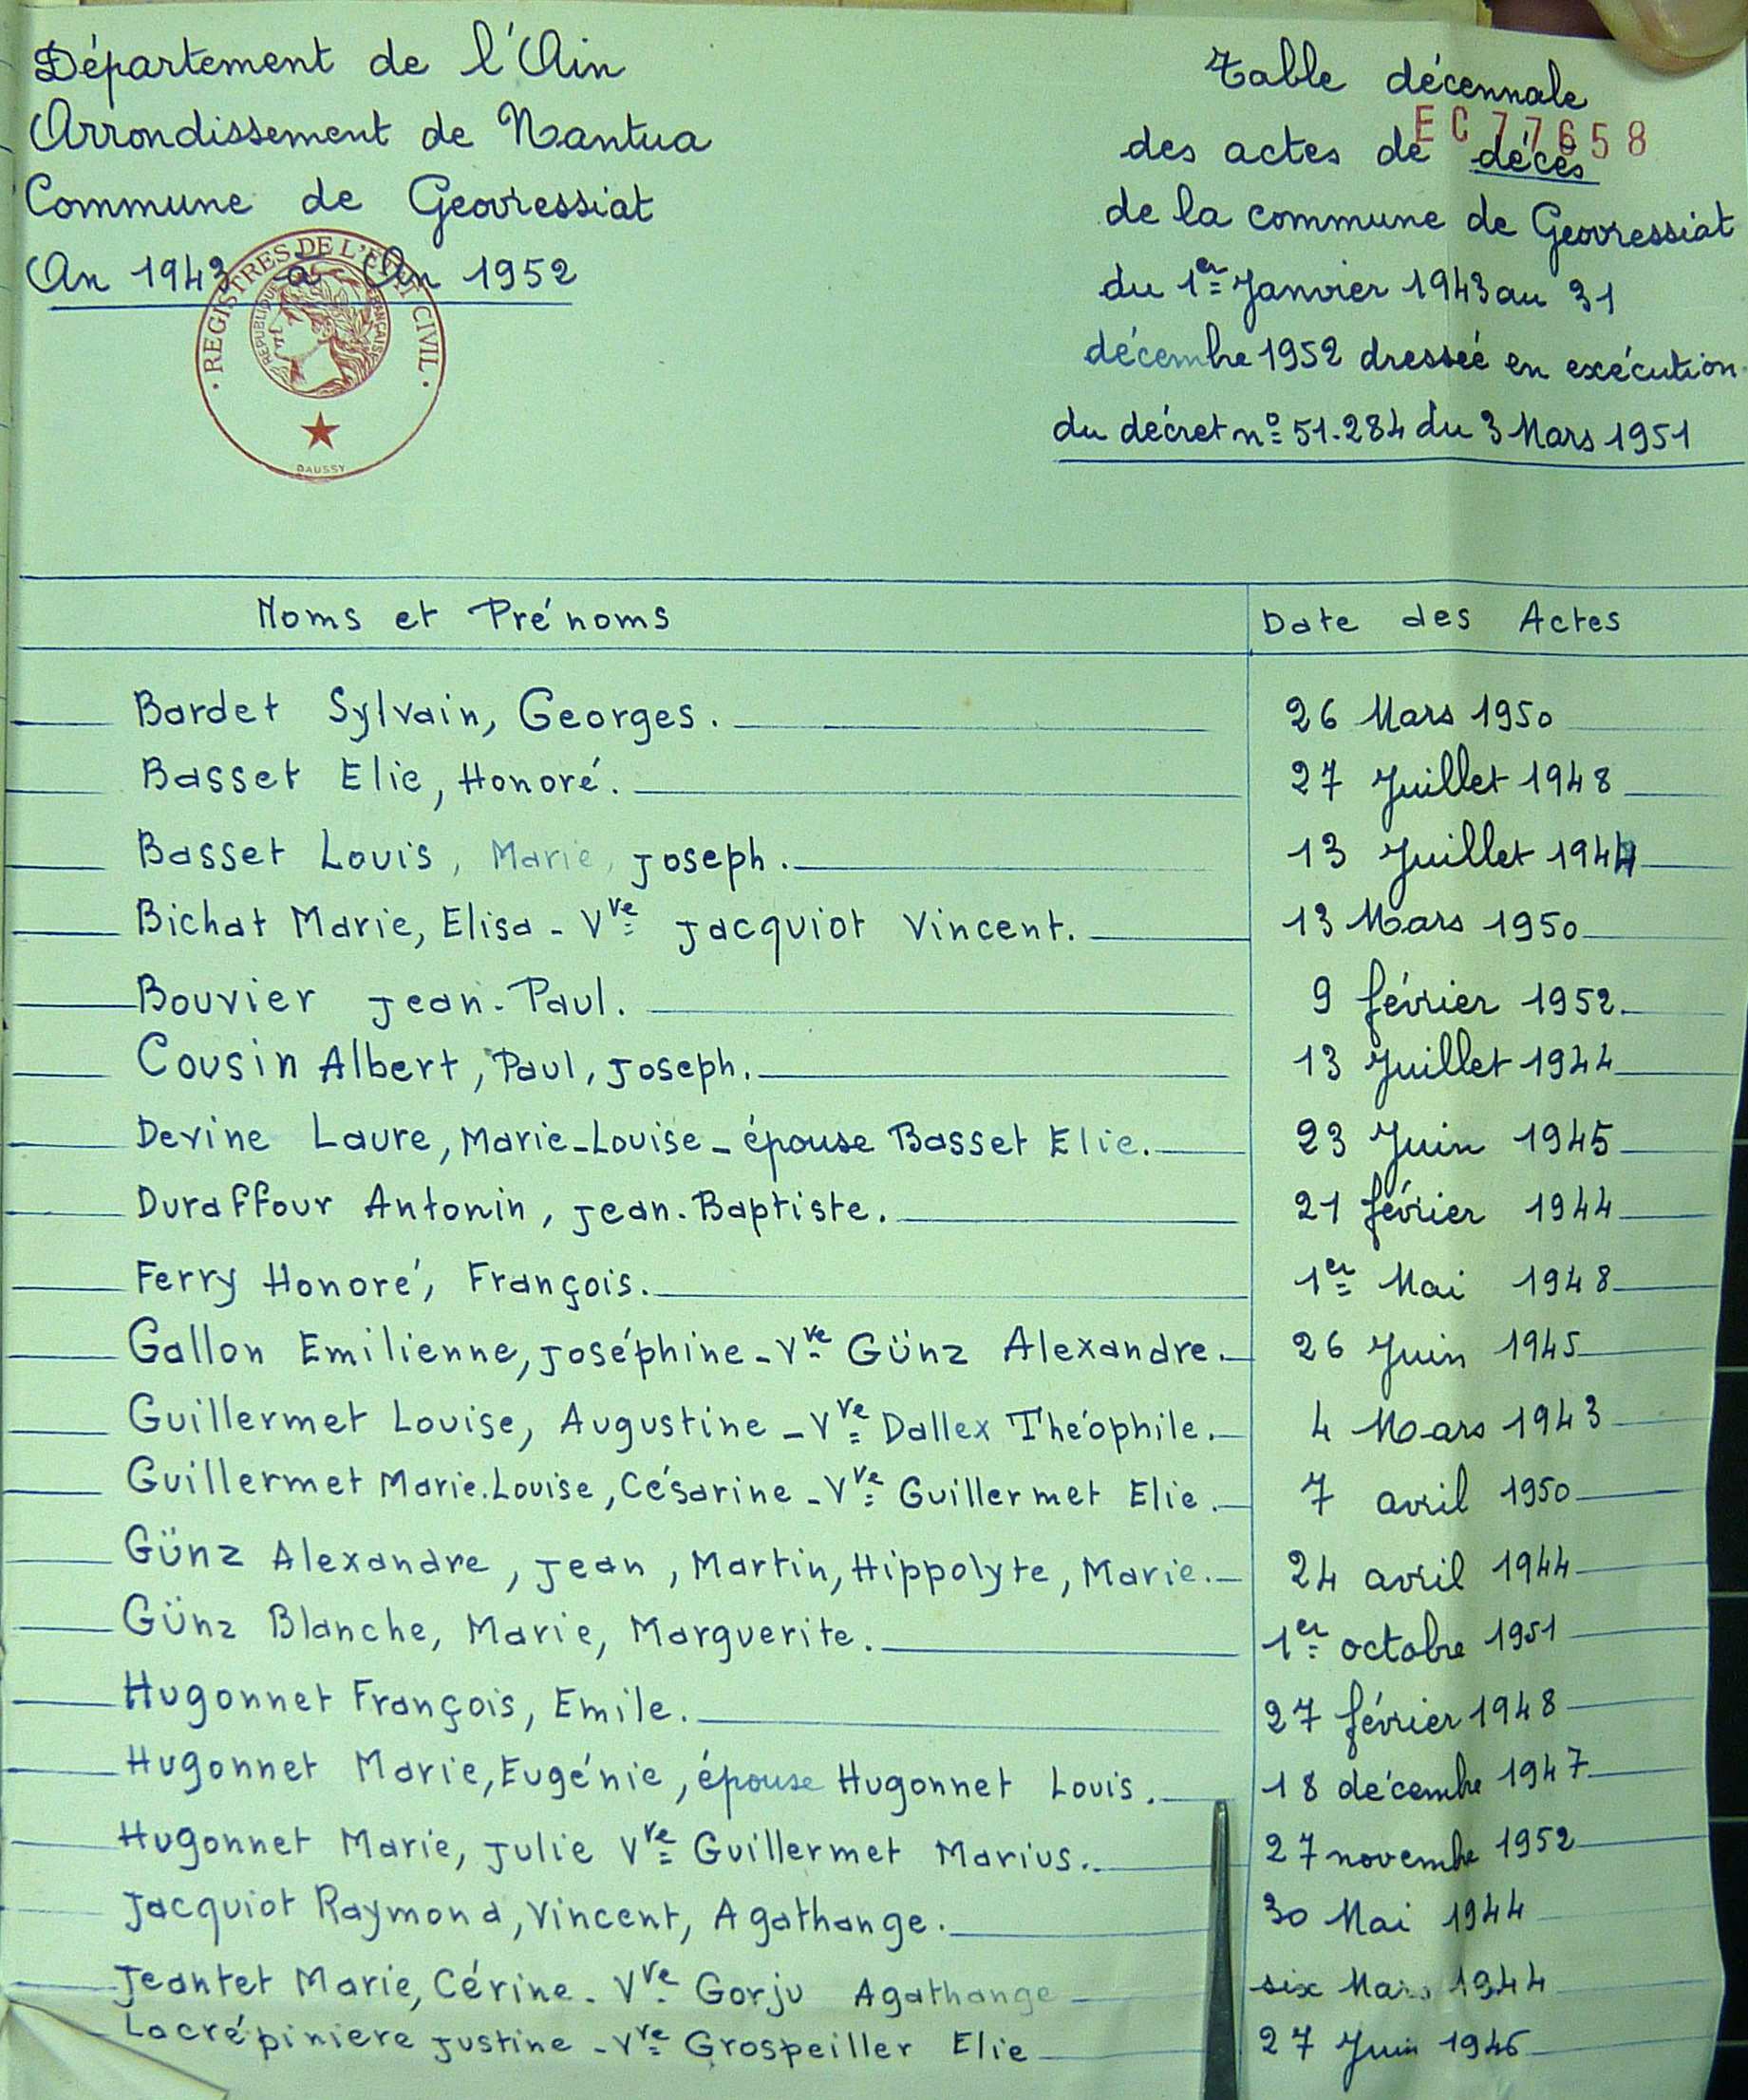 Département de l'Ain
Arrondissement de Nantua
Commune de Geovressiat
An 1943 à An 1952
REGISTRES DE L'ÉTAT CIVIL
REPUBLIQUE FRANÇAISE
DAUSSY
Table décennale
EC77658
des actes de décès
de la commune de Geovressiat
du 1er Janvier 1943 au 31
décembre 1952 dressée en exécution
du décret no 51.284 du 3 Mars 1951
Noms et Prénoms Date des Actes
Bardet Sylvain, Georges. 26 Mars 1950
Basset Elie, Honoré. 27 Juillet 1948
Basset Louis, Marie, Joseph. 13 Juillet 1944
Bichat Marie, Elisa - Vve Jacquiot Vincent. 13 Mars 1950
Bouvier Jean-Paul. 9 février 1952
Cousin Albert, Paul, Joseph. 13 Juillet 1944
Devine Laure, Marie-Louise - épouse Basset Elie. 23 Juin 1945
Duraffour Antonin, Jean-Baptiste. 21 février 1944
Ferry Honoré, François. 1er Mai 1948
Gallon Emilienne, Joséphine - Vve Günz Alexandre. 26 Juin 1945
Guillermet Louise, Augustine - Vve Dallex Théophile. 4 Mars 1943
Guillermet Marie-Louise, Césarine - Vve Guillermet Elie. 7 avril 1950
Günz Alexandre, Jean, Martin, Hippolyte, Marie. 24 avril 1944
Günz Blanche, Marie, Marguerite. 1er octobre 1951
Hugonnet François, Emile. 27 février 1948
Hugonnet Marie, Eugénie, épouse Hugonnet Louis. 18 décembre 1947
Hugonnet Marie, Julie Vve Guillermet Marius. 27 novembre 1952
Jacquiot Raymond, Vincent, Agathange. 30 Mai 1944
Jeantet Marie, Cérine - Vve Gorju Agathange six Mars 1944
Lacrépiniere Justine - Vve Grospeiller Elie 27 Juin 1946